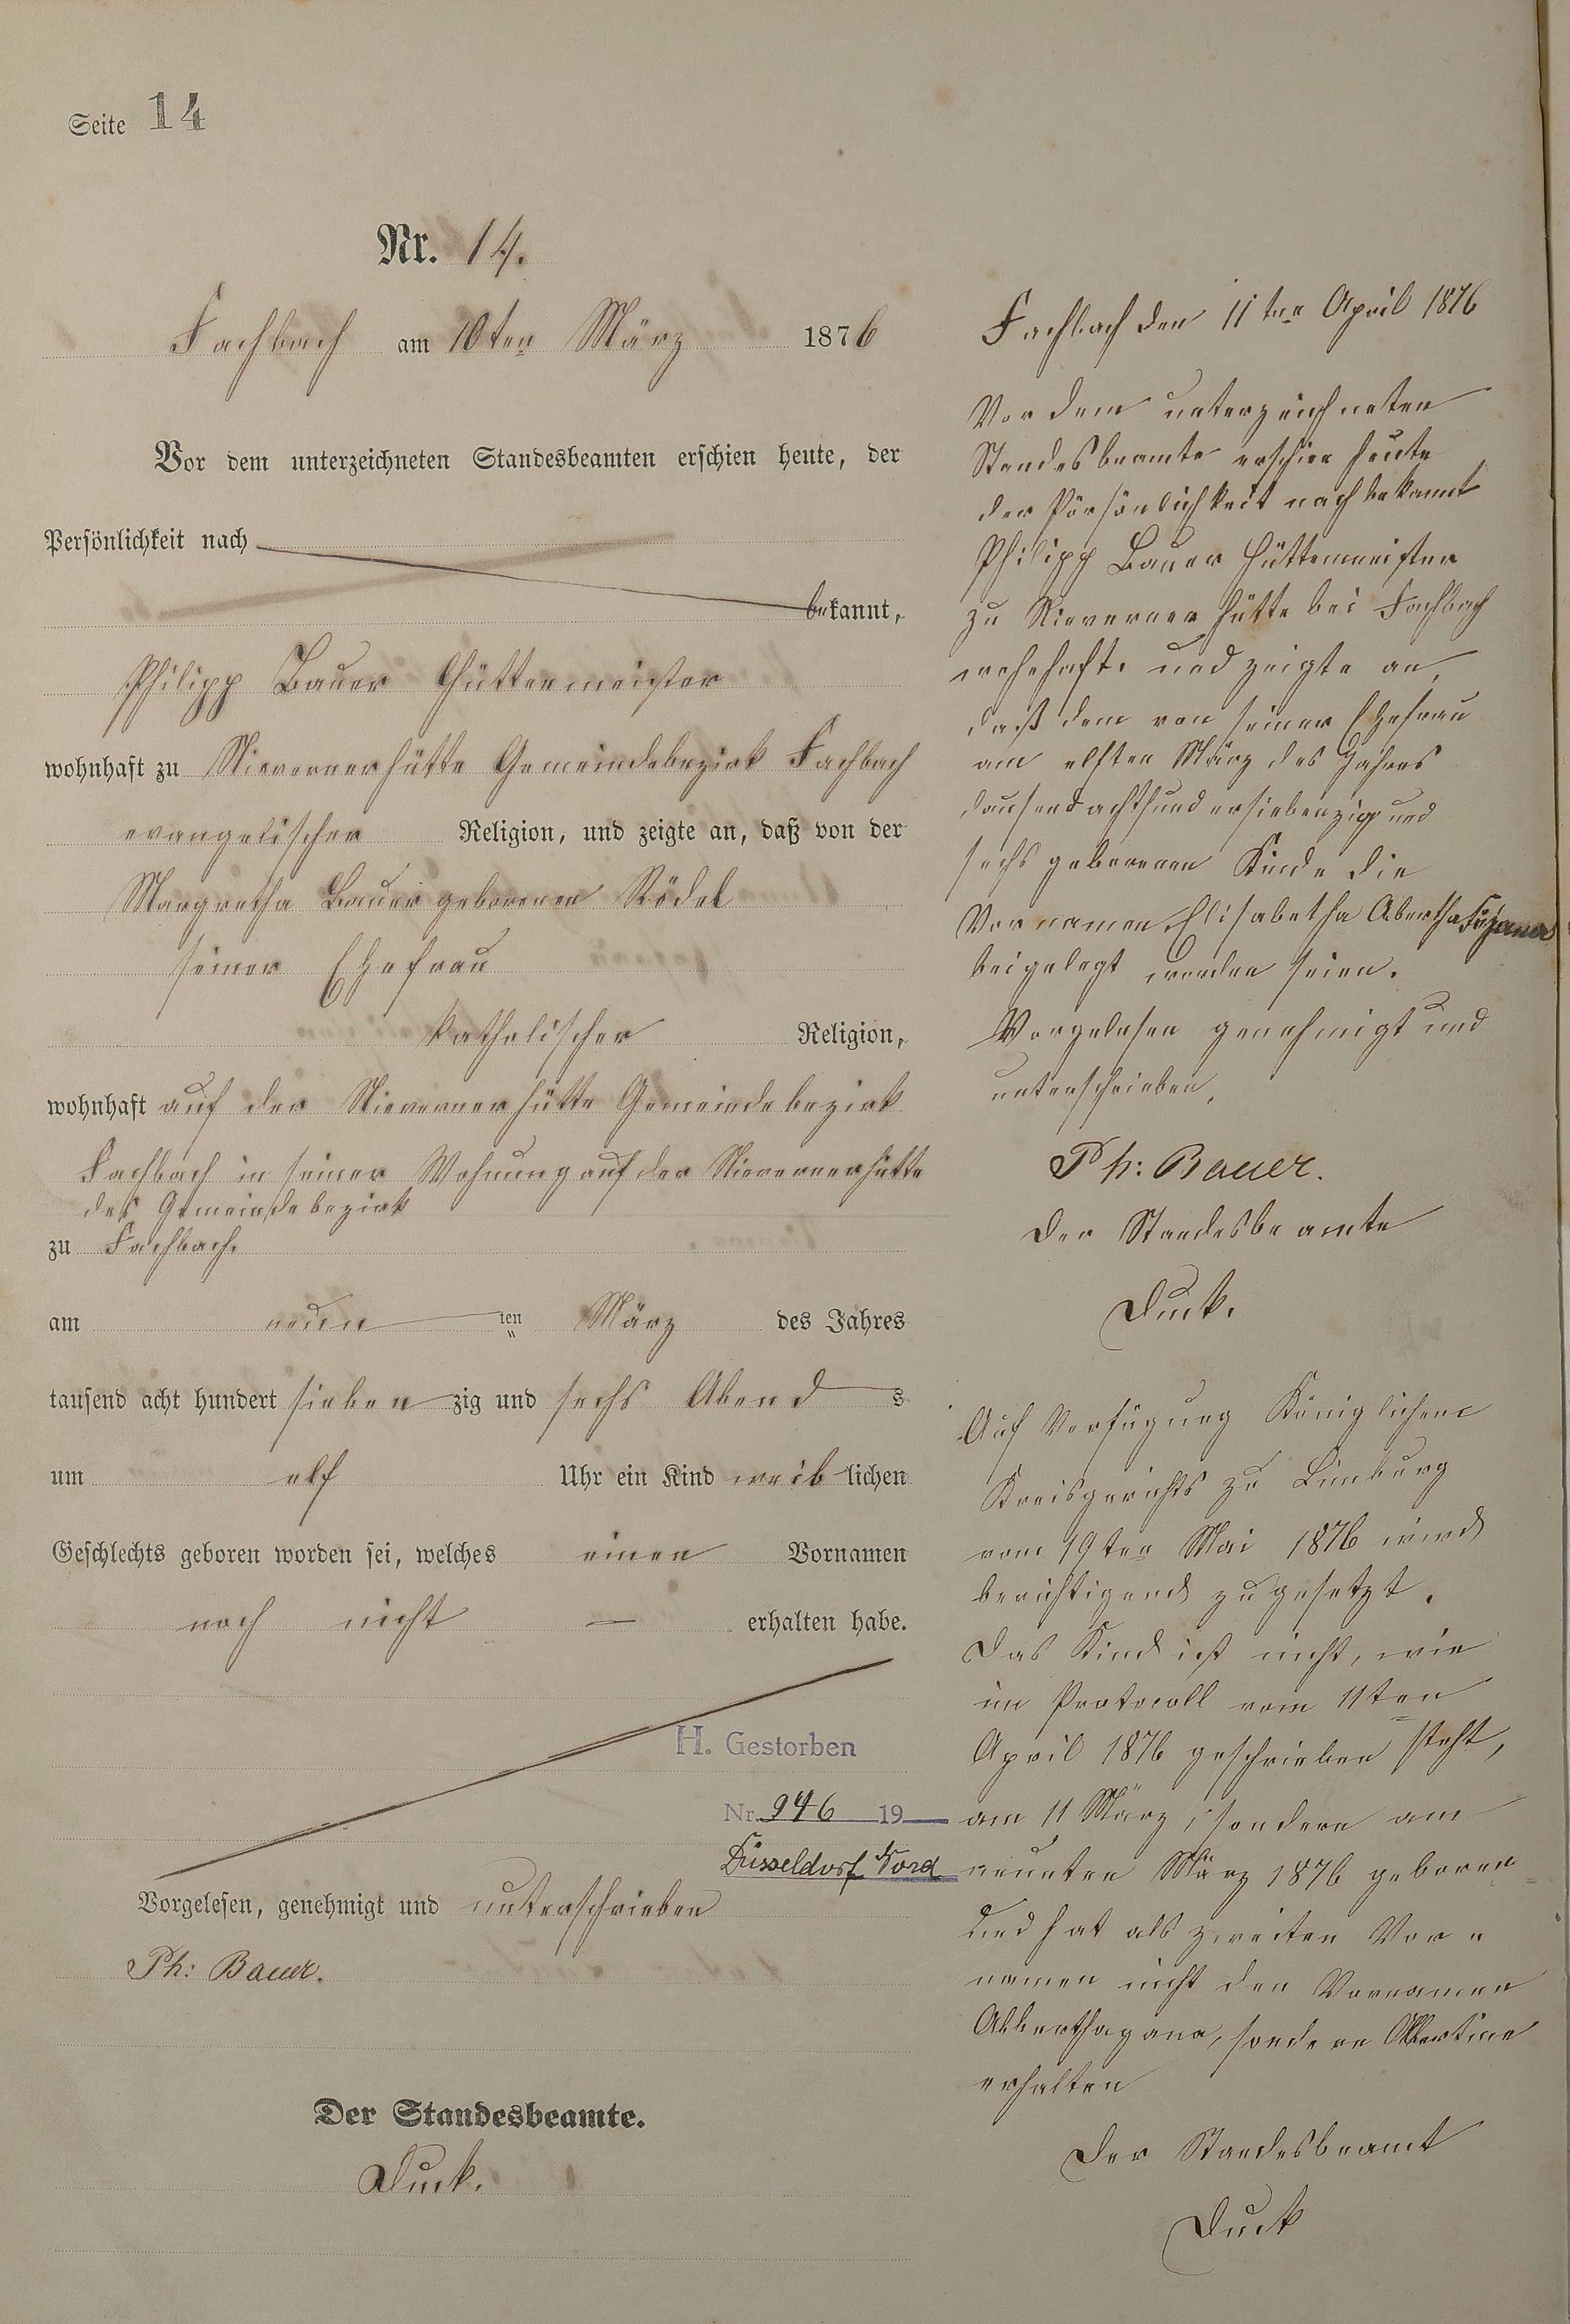 Seite 14
Nr. 14.
Fachbach am 10ten März 1876
Vor dem unterzeichneten Standesbeamten erschien heute, der
Persönlichkeit nach
bekannt,
Philipp Bauer Hüttenmeister
wohnhaft zu Nievernerhütte Gemeindebezirk Fachbach
evangelischer Religion, und zeigte an, daß von der
Margretha Bauer geborenen Rödel
seiner Ehefrau
katholischer Religion,
wohnhaft auf der Nievernerhütte Gemeindebezirk
Fachbach in seiner Wohnung auf der Nievernerhütte
des Gemeindebezirk
zu Fachbach.
am neun ten März des Jahres
tausend acht hundert sieben zig und sechs Abend s
um elf Uhr ein Kind weib lichen
Geschlechts geboren worden sei, welches einen Vornamen
noch nicht — erhalten habe.
H. Gestorben
Nr. 946 19
Düsseldorf Nord
Vorgelesen, genehmigt und unterschrieben
Ph: Bauer.
Der Standesbeamte.
Duck.
Fachbach den 11ten April 1876
Vor dem unterzeichneten
Standesbeamte erschien heute
der Pörsönlichkeit nach bekannt
Philipp Bauer Hüttenmeister
zu Nieverner Hütte bei Fachbach
wohnhaft. und zeigte an,
daß dem von seiner Ehefrau
am elften März des Jahres
dausend achthundersiebenzig und
sechs geborenen Kinde die
Vornamen Elisabetha Abertha
beigelegt worden seien.
Vorgelesen genehmigt und
unterschrieben,
Ph: Bauer.
Der Standesbeamte
Duck.
Auf Verfügung Königlichen
Kreisgerichts zu Limburg
vom 19ten Mai 1876 wird
berichtigend zugesetzt.
Das Kind ist nicht, wie
im Protocoll vom 11ten
April 1876 geschrieben steht,
am 11 März, sondern am
neunten März 1876 geboren
und hat als zweiten Vor-
namen nicht den Vornamen
sondern Albertine
erhalten
Der Standesbeamt
Duck